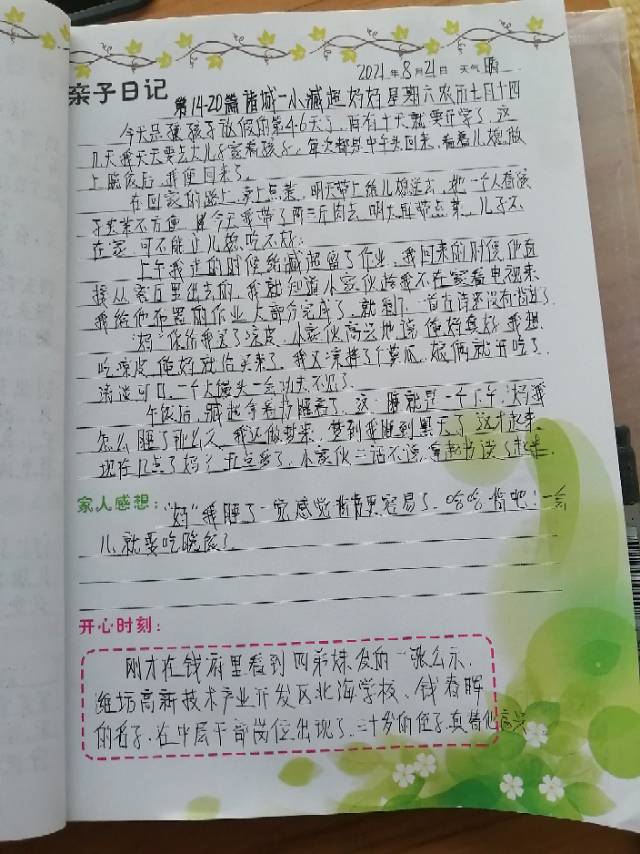 2021年8月21日 天气 晴
亲子日记
第14-20篇 诸城一小臧超妈妈 星期六农历七月十四
今天是孩子放假的第46天了,再有十天就要开学了,这
几天每天要去大儿子家看孩子,每次都是中午头回来,看着儿媳做
上晚饭后,我便回来了。
在回家的路上,买上点菜,明天带上给儿媳送去,她一个人看孩
子出来不方便,今天我带了两三斤肉去,明天再带点菜,儿子不
在家,可不能让儿媳吃不好。
上午我走的时候给臧超留了作业,我回来的时候他直
接从家里出去的,我就知道小家伙趁我不在家看电视来
我给他布置的作业大部分完成了,就剩下一首古诗还没有背过了
"妈"你给我买了凉皮,小家伙高兴地说 俺妈真好 我想
吃凉皮俺妈就给买来了,我又凉拌了个黄瓜,娘俩就开吃了
清淡可口,一个大馒头一会功夫不见了。
午饭后,臧超拿着书睡着了,这一睡就是一个下午,妈我
怎么睡了那么久,我还做梦来,梦到我睡到黑天了,这才起来
现在几点了妈?五点多了,小家伙二话不说,拿起书读了起来.
家人感想: "妈"我睡了一觉感觉背书更容易了.哈哈 背吧!一会
儿就要吃晚饭了
开心时刻:
刚才在钱府里看到四弟妹发的一张公示,
潍坊高新技术产业开发区北海学校、钱春晖
的名子.在中层干部岗位出现了,二十多岁的侄子,真替他高兴